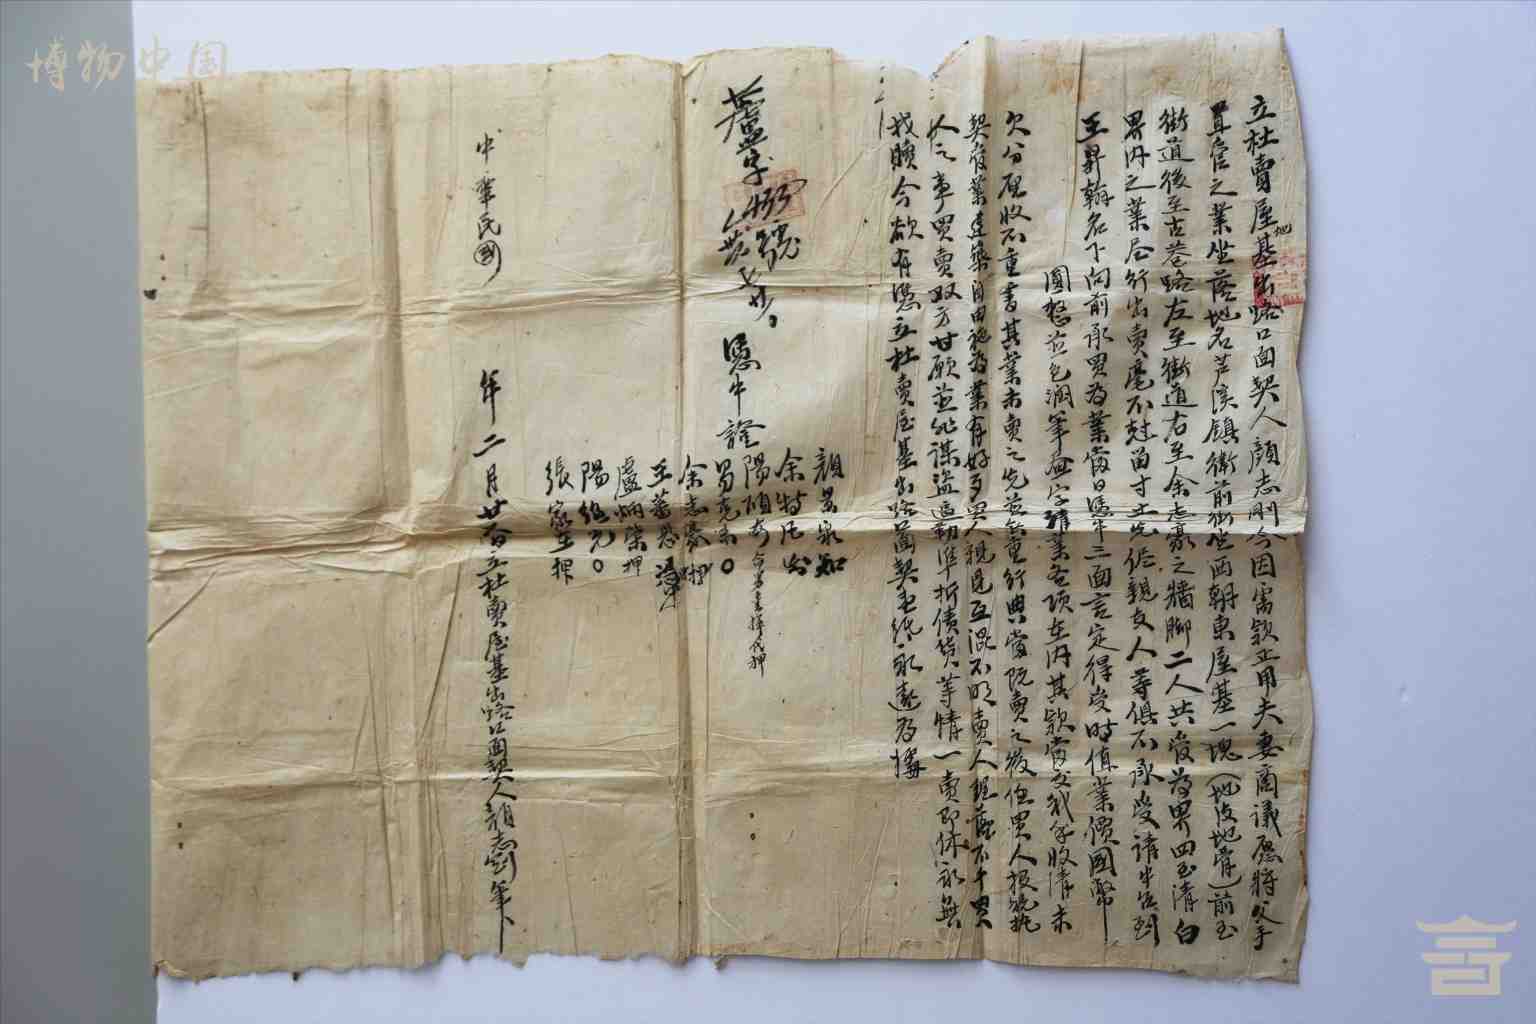 立杜賣屋基地出路口面契人顏志剛今因需款正用夫妻商議愿將父手
置管之業坐落地名芦溪鎮衙前街坐西朝東屋基一塊(地皮地骨)前至
街道後至古巷路左至街道右至余志豪之牆脚二人共管為界四至清白
界內之業尽行出賣毫不愆留寸土先侭親友人等俱不承受請中告到
王昇翰名下向前承買為業當日憑中三面言定得受時值業價國幣
圓整並包潤筆畫字請業各項在內其款當交我手收清未
欠分厘收不重書其業未賣之先並無重行典當既賣之後任買人投稅執
契管業建築自由永為業有好歹買人親見互混不明賣人理落不干買
人之事買賣双方甘願並非謀盜逼勒準折債貨等情一賣即休永無
找贖今欲有憑立杜賣屋基出路口面契壱纸永遠為據
蘆字 號
憑中證
顏
余特
陽
余志豪押
王
盧炳榮押
陽
張家 押
中華民國 年二月廿 日立杜賣屋基出路口面契人顏志剛筆
博物中国